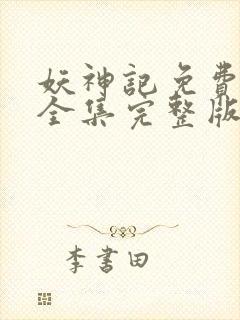 妖神記免費
全集完整版
李書田